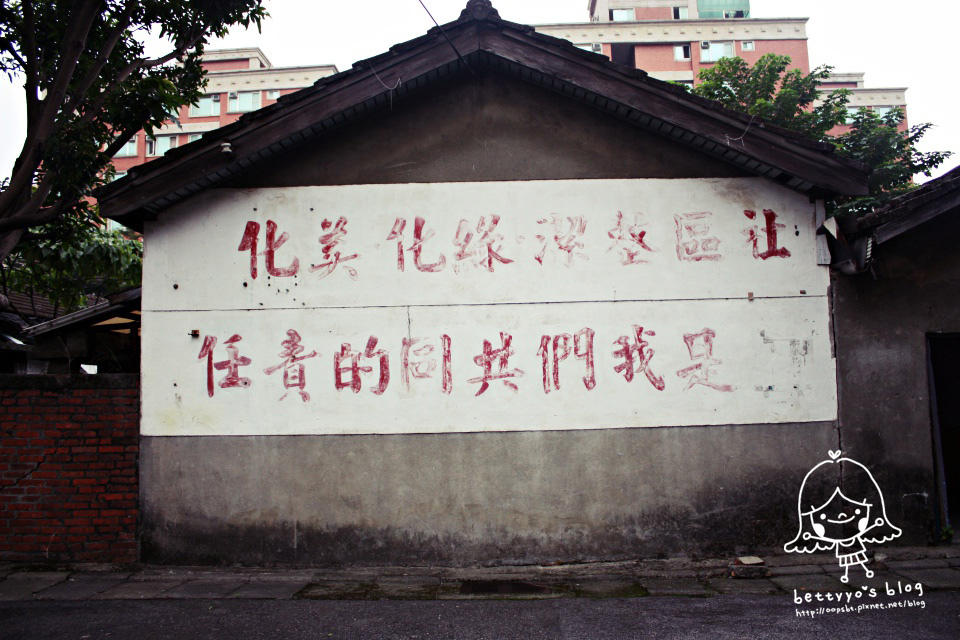 社區整潔·綠化·美化
是我們共同的責任
bettyyo's blog
http://oopsbt.pixnet.net/blog